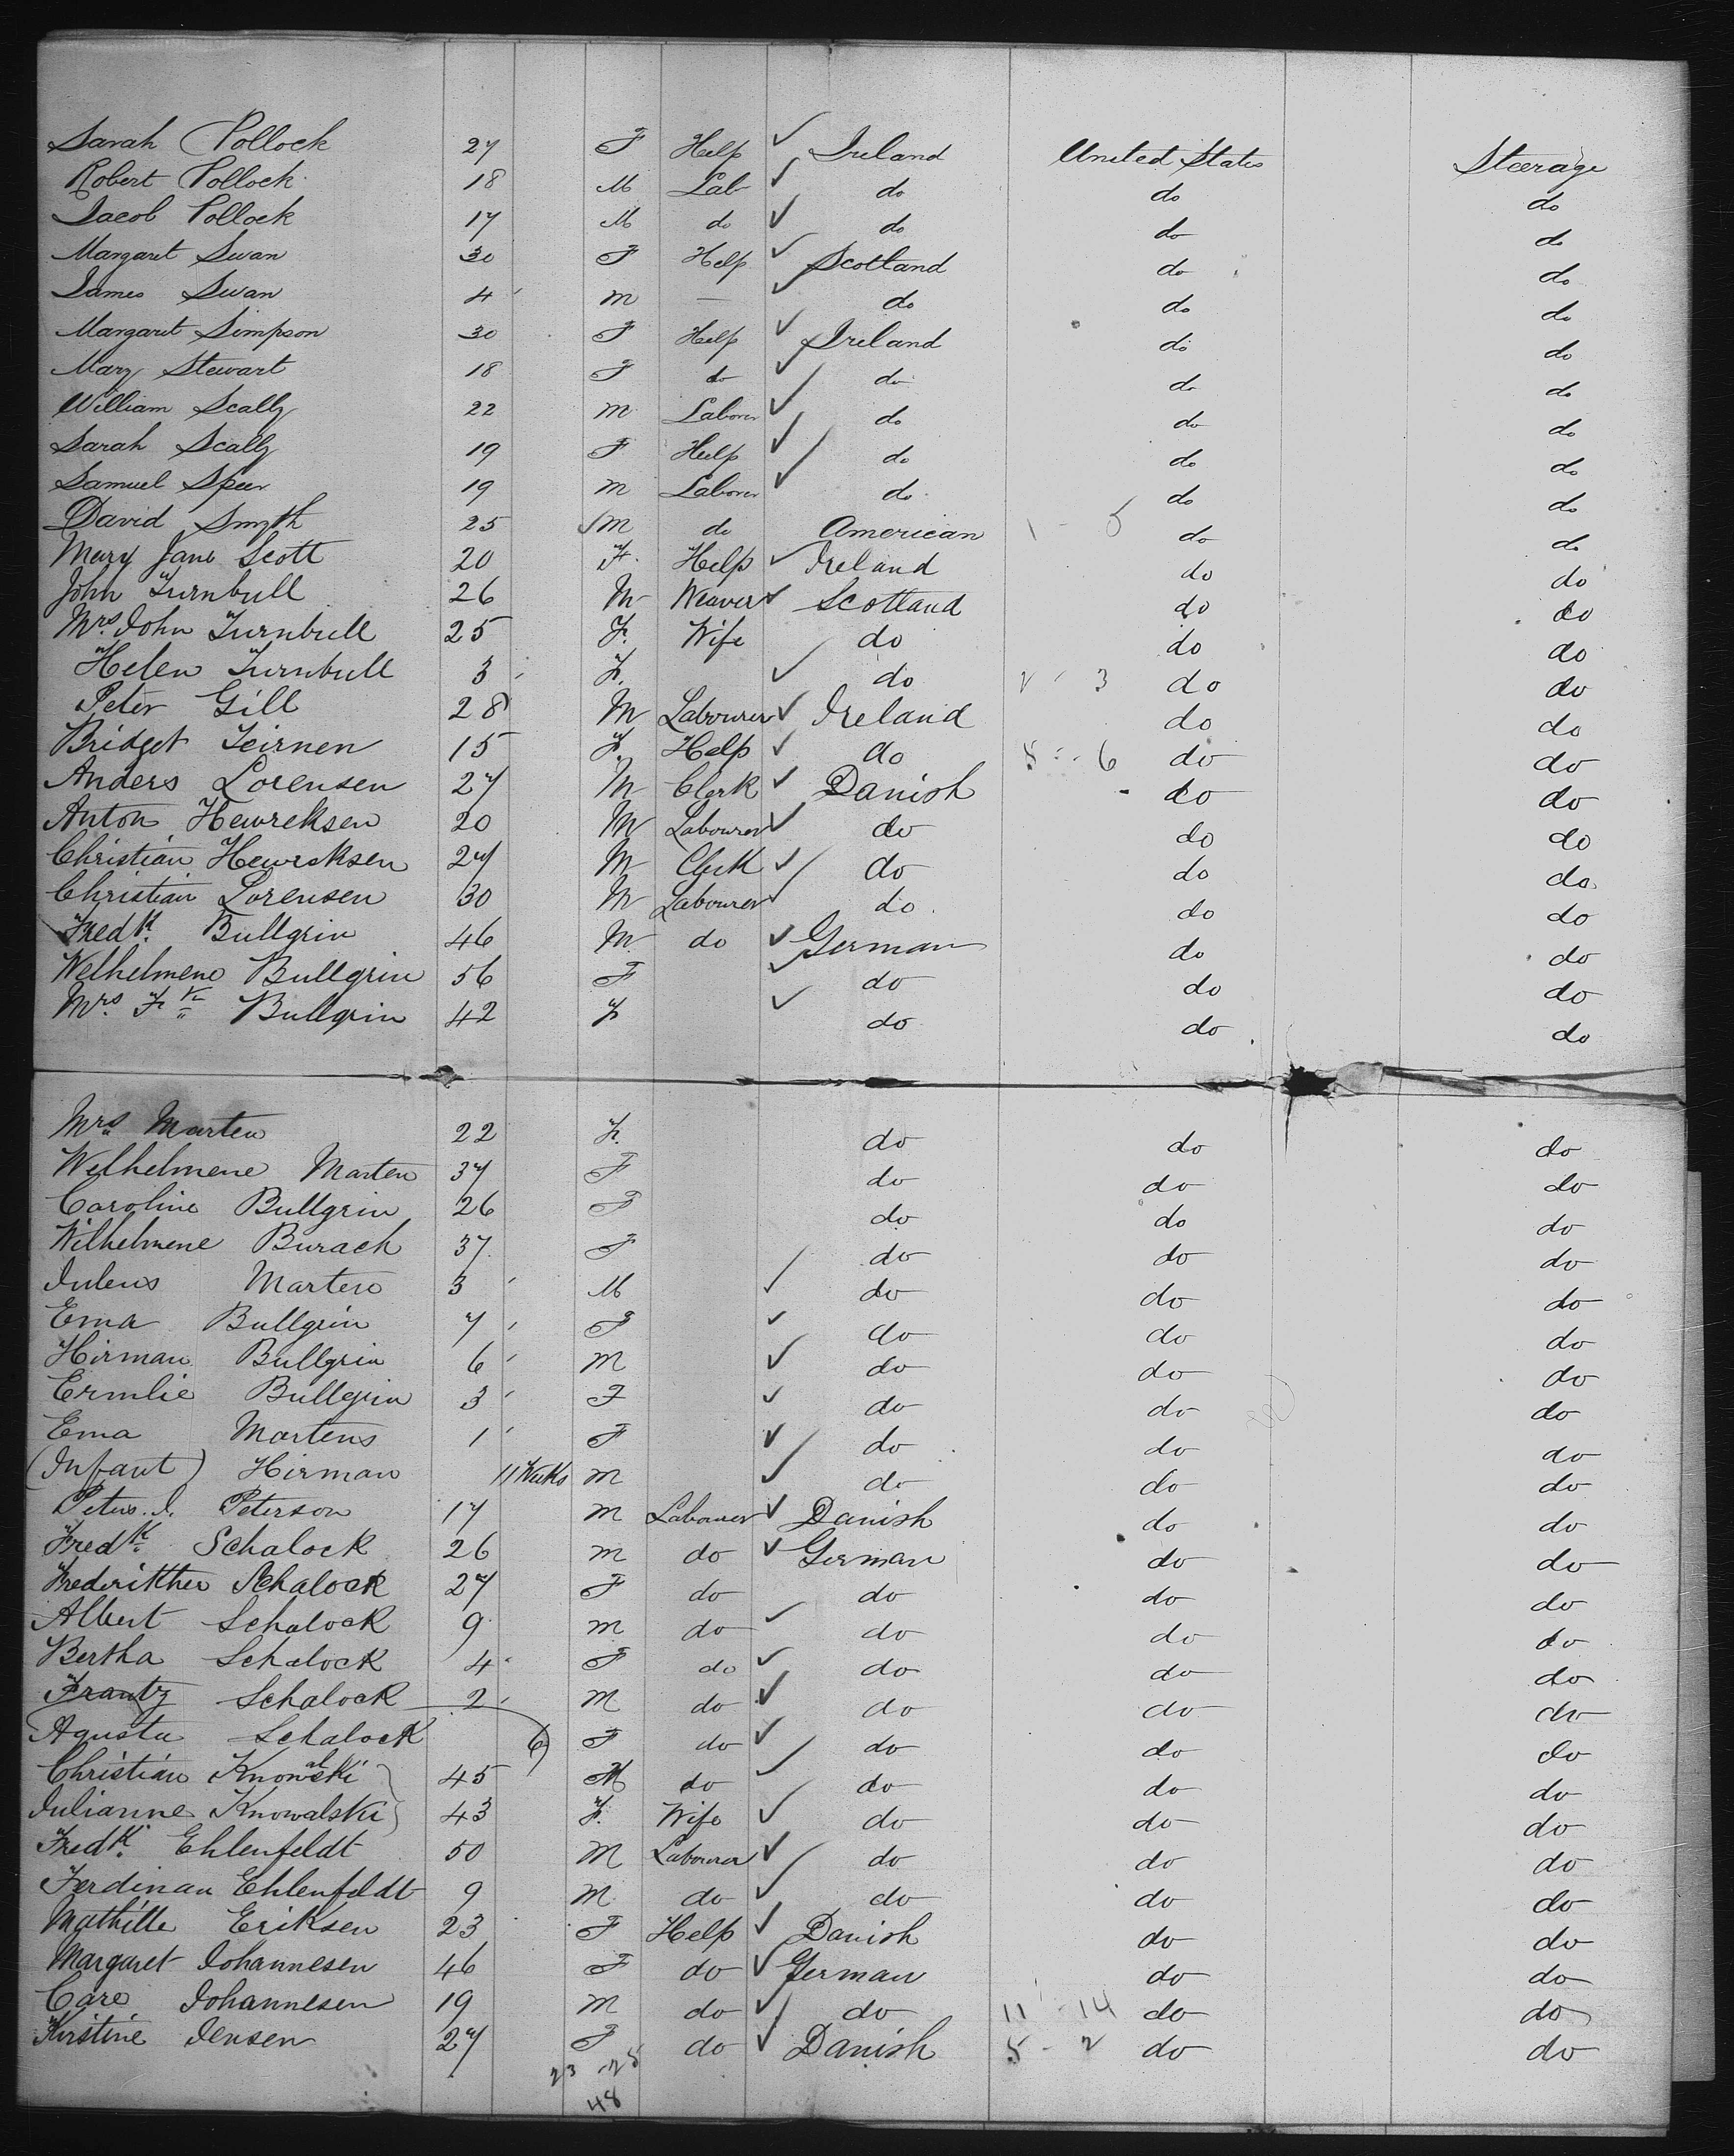 Sarah Pollock 27 F Help ✓ Ireland United States Steerage
Robert Pollock 18 M Lab ✓ do do do
Jacob Pollock 17 M do ✓ do do do
Margaret Swan 30 F Help ✓ Scotland do do
James Swan 4 M — ✓ do do do
Margaret Simpson 30 F Help ✓ Ireland do do
Mary Stewart 18 F do ✓ do do do
William Scally 22 M Laborer ✓ do do do
Sarah Scally 19 F Help ✓ do do do
Samuel Speer 19 M Laborer ✓ do do do
David Smyth 25 ✓ M do American 1 - 5 do do
Mary Jane Scott 20 F. Help ✓ Ireland do do
John Turnbull 26 M Weaver ✓ Scotland do do
Mrs. John Turnbull 25 F. Wife ✓ do do do
Helen Turnbull 3 F. ✓ do 2 - 3 do do
Peter Gill 28 M Labourer ✓ Ireland do do
Bridget Teirnen 15 F. Help ✓ do 5 - 6 do do
Anders Lorensen 27 M Clerk ✓ Danish do do
Anton Hewreksen 20 M Labourer ✓ do do do
Christian Hewreksen 27 M Clerk ✓ do do do
Christian Lorensen 30 M Labourer ✓ do do do
Fredk. Bullgrin 46 M do ✓ German do do
Welhelmene Bullgrin 56 F ✓ do do do
Mrs. Fk Bullgrin 42 F ✓ do do do
Mrs. Marten 22 F. do do do
Welhelmene Marten 37 F do do do
Caroline Bullgrin 26 F do do do
Wilhelmene Burach 37 F do do do
Juleus Marten 3 M ✓ do do do
Ema Bullgrin 7 F ✓ do do do
Hirman Bullgrin 6 M ✓ do do do
Ermlie Bullgrin 3 F ✓ do do do
Ema Martens 1 F ✓ do do do
(Infant) Hirman 11 Weeks M ✓ do do do
Peter. J. Peterson 17 M Labourer ✓ Danish do do
Fredk. Schalock 26 M do ✓ German do do
Frederikther Schalock 27 F do do do do
Albert Schalock 9 M do ✓ do do do
Bertha Schalock 4 F do ✓ do do do
Frantz Schalock 2 M do ✓ do do do
Agusta Schalock 6 F do ✓ do do do
Christian Knowalski 45 M do ✓ do do do
Julianne Knowalski 43 F. Wife ✓ do do do
Fredk. Ehlenfeldt 50 M Labourer ✓ do do do
Ferdinan Ehlenfeldt 9 M do ✓ do do do
Mathille Eriksen 23 F Help ✓ Danish do do
Margaret Johannesen 46 F do ✓ German do do
Care Johannesen 19 M do ✓ do 11 - 14 do do
Kirstine Jensen 27 F do ✓ Danish 5 - 2 do do
23 25
48